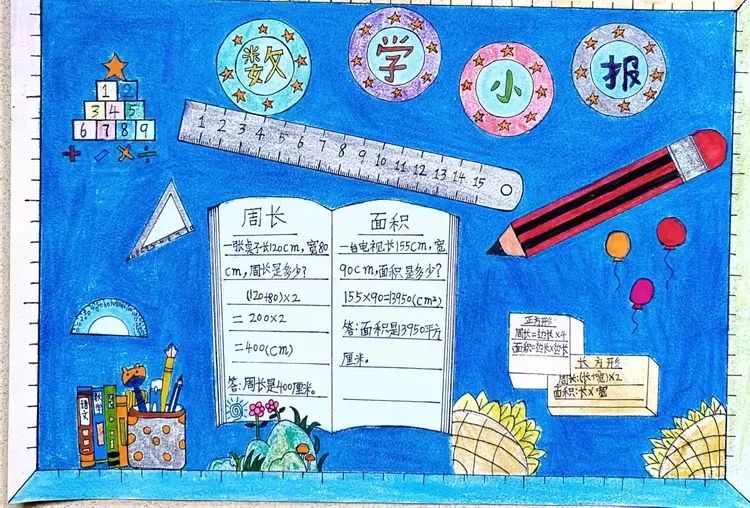 数学小报
1 2
3 4 5
6 7 8 9
+ - × ÷
1 2 3 4 5 6 7 8 9 10 11 12 13 14 15
周长
一张桌子长120cm，宽80
cm，周长是多少？
(120+80)×2
=200×2
=400(cm)
答：周长是400厘米。
面积
一台电视长155cm，宽
90cm，面积是多少？
155×90=13950(cm²)
答：面积是13950平方
厘米。
正方形
周长=边长×4
面积=边长×边长
长方形
周长：(长+宽)×2
面积：长×宽
语文
数学